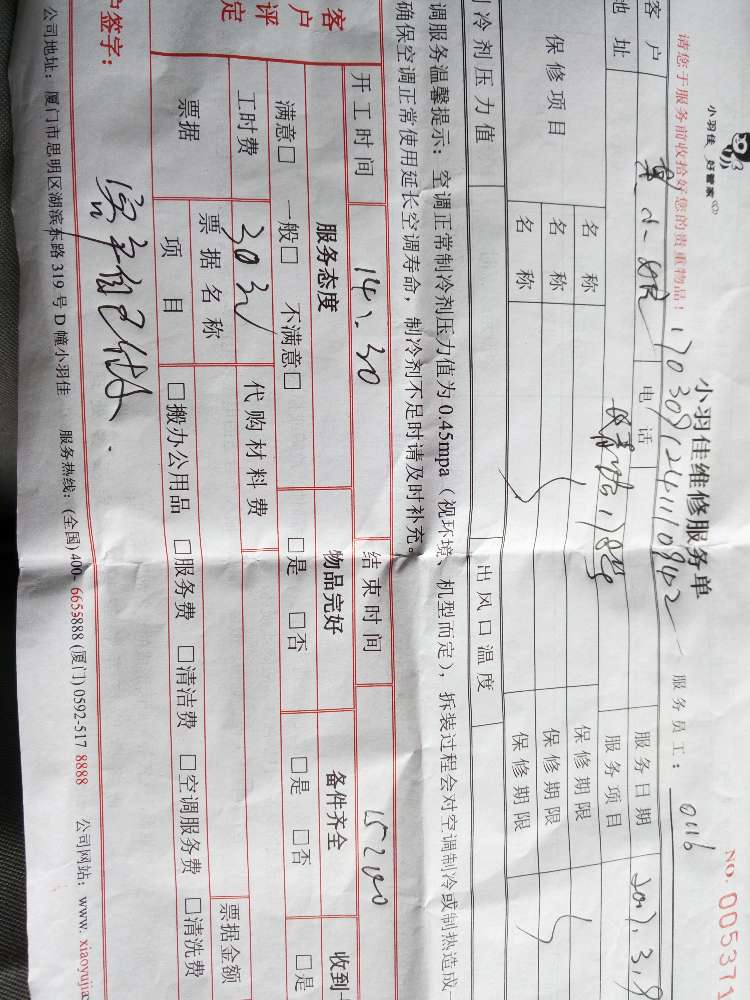 小羽佳 好管家
小羽佳维修服务单
NO. 005371
请您于服务前收拾好您的贵重物品!
1703091241110942
服务员工: 0116
客户
电话
服务日期
地址
服务项目
保修项目
名称
保修期限
名称
保修期限
名称
保修期限
制冷剂压力值
出风口温度
调服务温馨提示:空调正常制冷剂压力值为0.45mpa(视环境、机型而定),拆装过程会对空调制冷或制热造成
确保空调正常使用延长空调寿命,制冷剂不足时请及时补充。
开工时间 14:30 结束时间 15:00
客户评定
服务态度 物品完好 备件齐全 收到
满意□ 一般□ 不满意□ □是 □否 □是 □否 □是
工时费 30元 代购材料费
票据 票据名称 票据金额
项目 □搬办公用品 □服务费 □清洁费 □空调服务费 □清洗费
户签字:
公司地址:厦门市思明区湖滨东路319号D幢小羽佳 服务热线:(全国)400-6655888 (厦门)0592-517 8888 公司网站:www. xiaoyujia